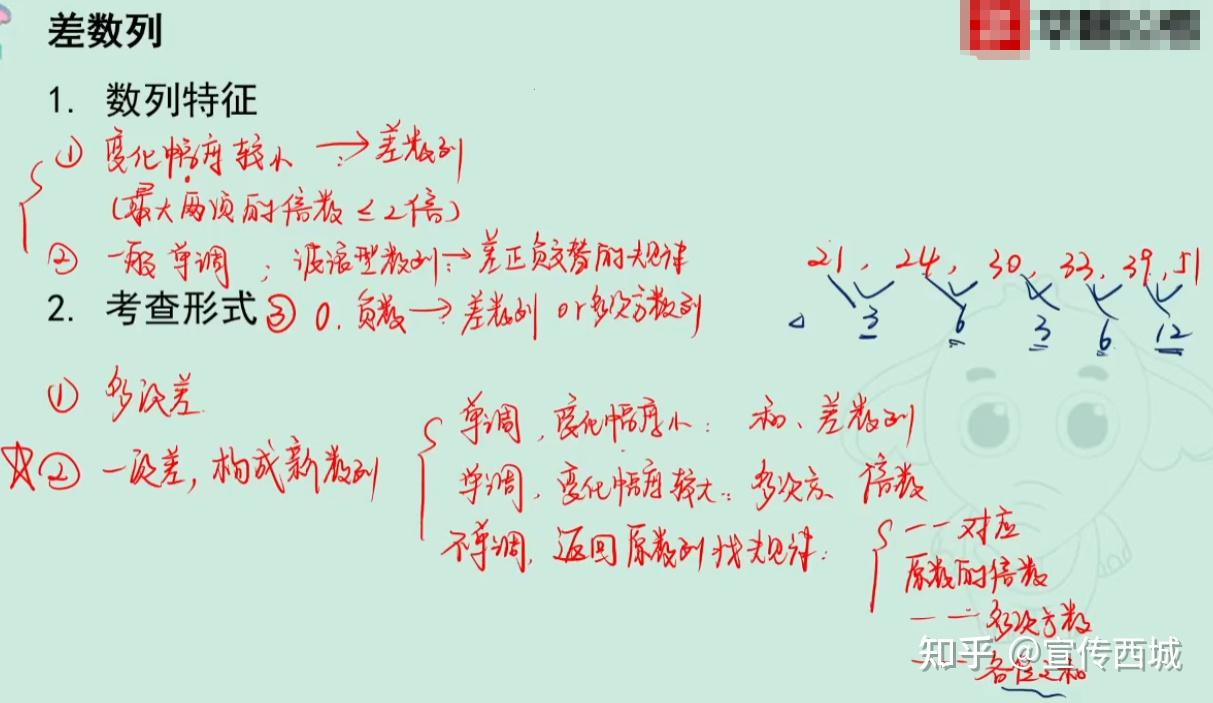 差数列
1. 数列特征
① 变化幅度较小 → 差数列
(最大两项的倍数 ≤ 2倍)
② 一般单调 ; 波浪型数列 → 差正负交替的规律
21, 24, 30, 33, 39, 51
3 6 3 6 12
2. 考查形式
③ 0. 负数 → 差数列 or 多次方数列
① 多次差
☆② 一次差, 构成新数列
单调, 变化幅度小: 和、差数列
单调, 变化幅度较大: 多次方、倍数
不单调, 返回原数列找规律:
一一对应
原数的倍数
一一 多次方数
各位之和
知乎 @宣传西城